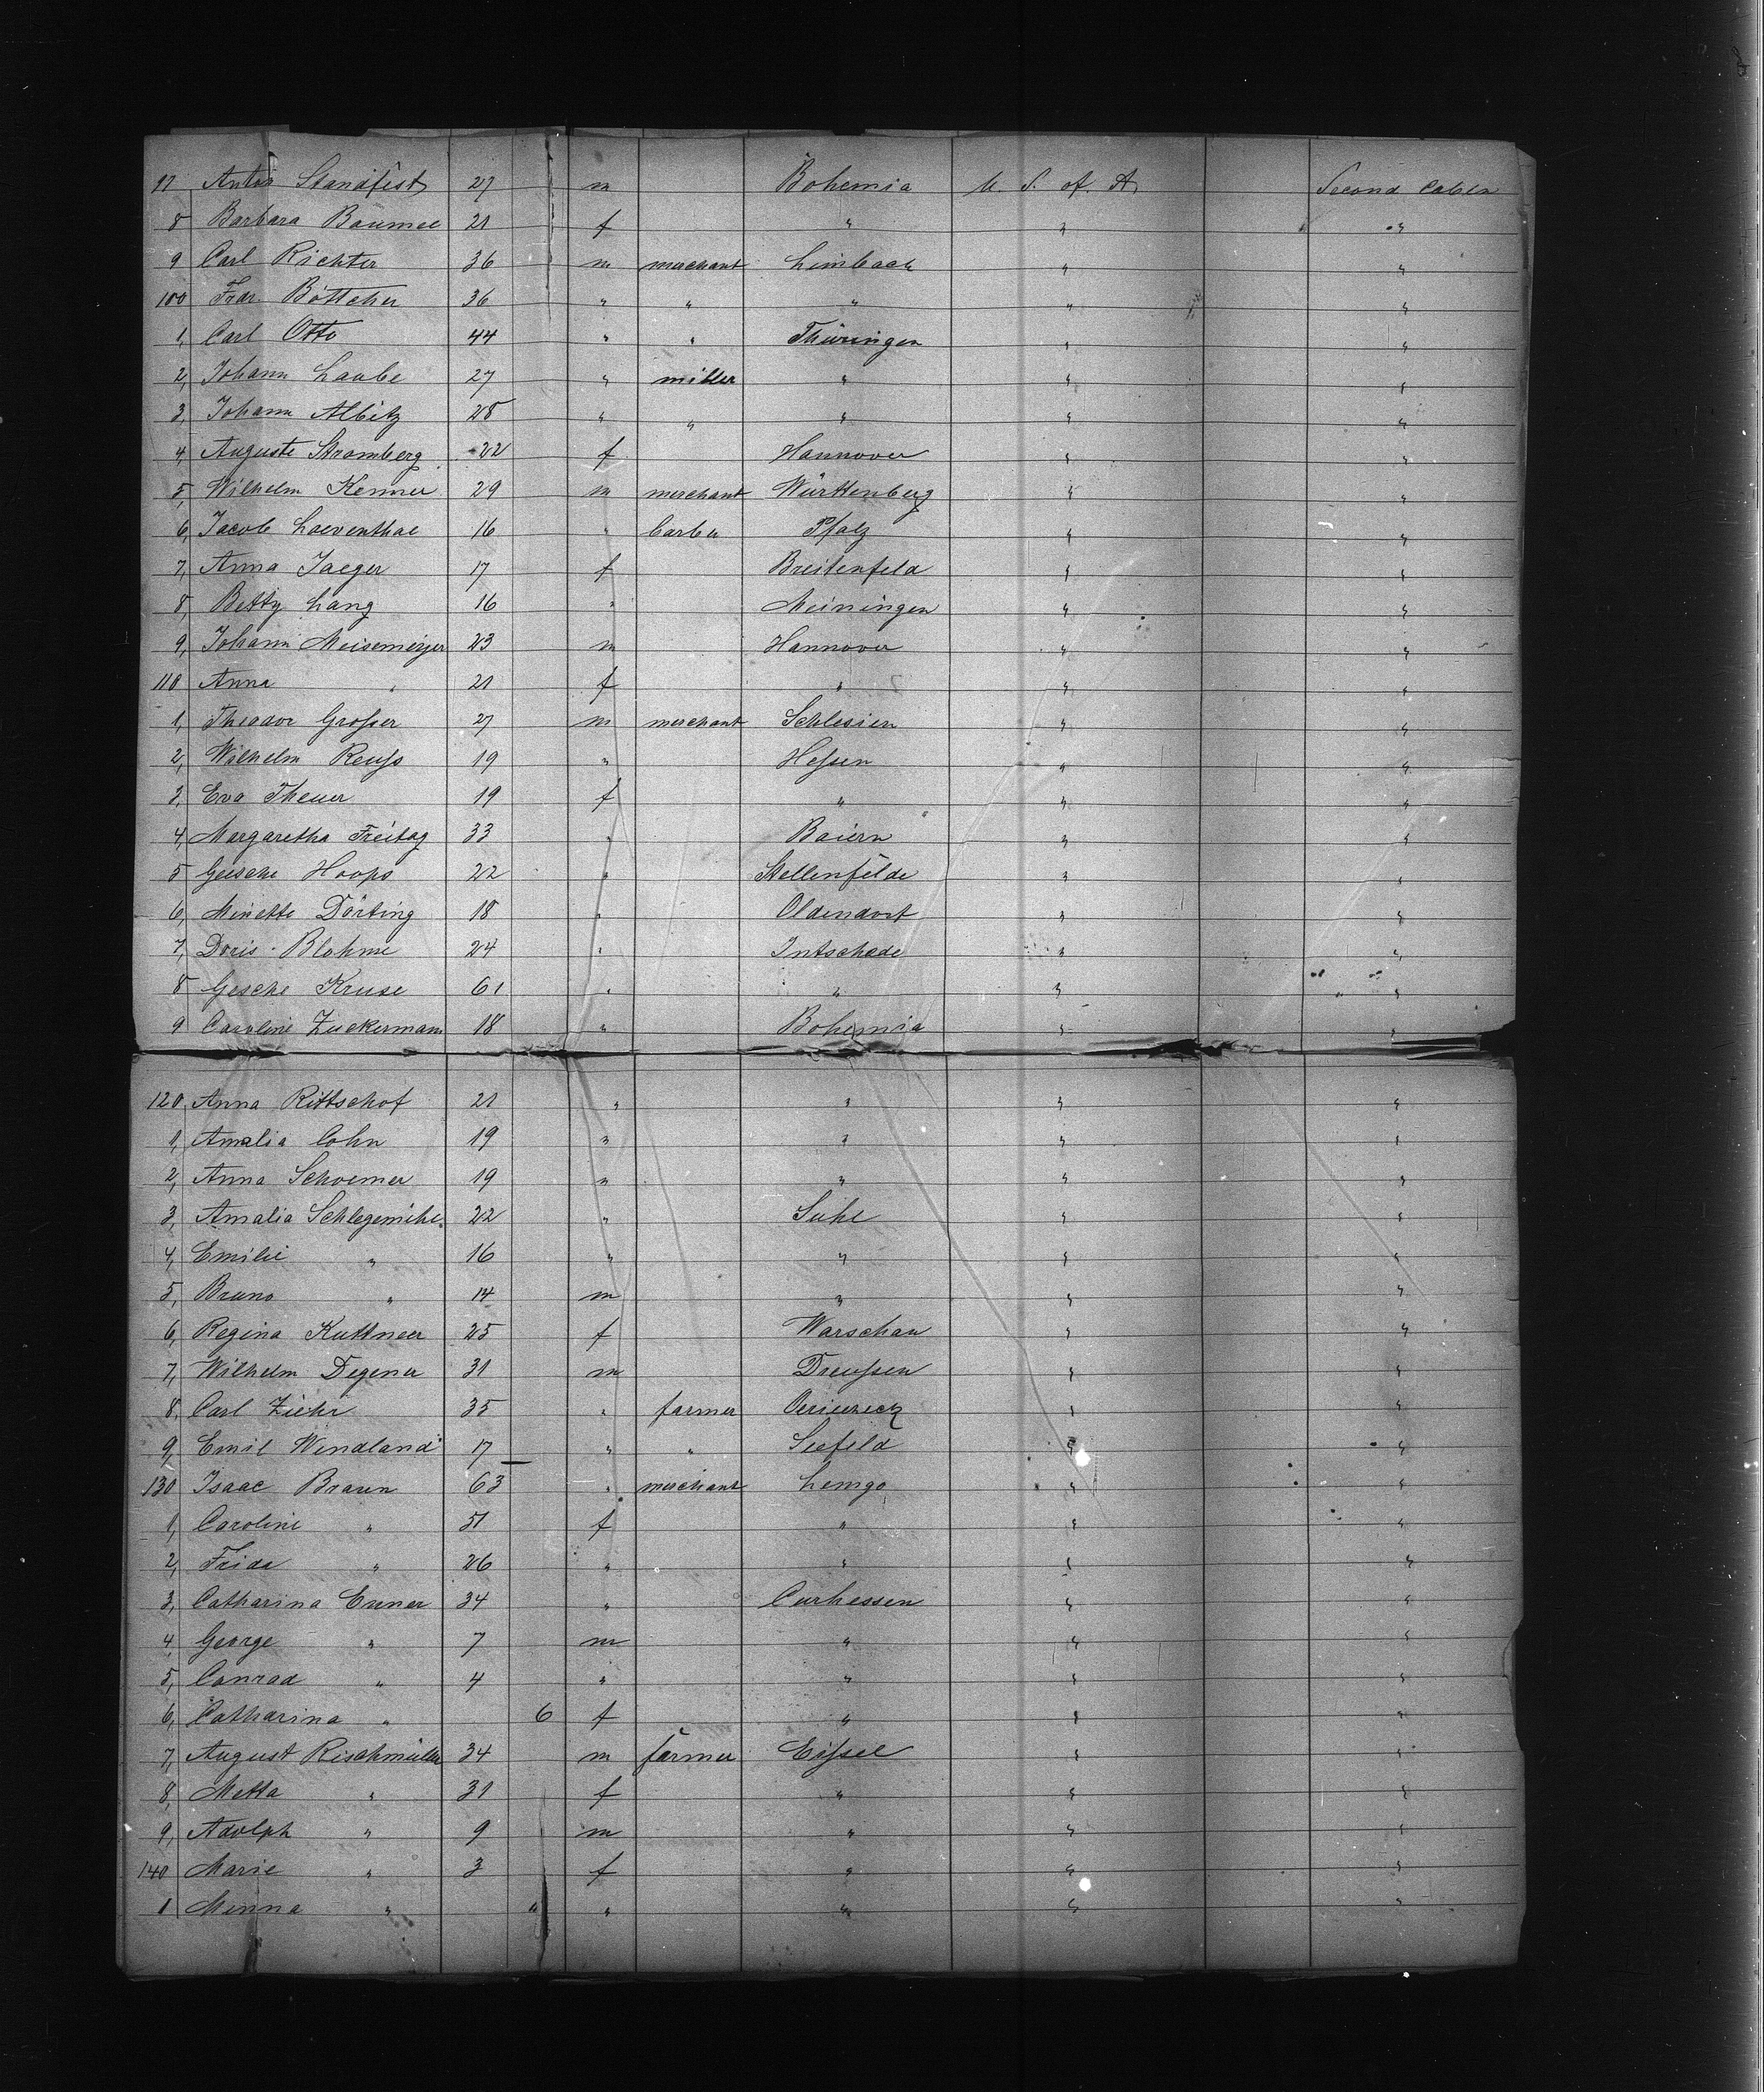 97 Anton Standfest 27 m Bohemia U. S. of. A. Second Cabin
8 Barbara Baumel 21 f " " "
9 Carl Richter 36 m merchant Limbach " "
100 Fedr. Böttcher 36 " " " " "
1, Carl Otto 44 " " Thüringen " "
2, Johann Laube 27 " miller " " "
3, Johann Albitz 28 " " " " "
4, Auguste Stromberg 22 f Hannover " "
5, Wilhelm Kenner 29 m merchant Württenberg " "
6, Jacob Loeventhal 16 " barber Pfalz " "
7, Anna Jaeger 17 f Breitenfeld " "
8, Betty Lang 16 " Meiningen " "
9, Johann Meisemeijer 23 m Hannover " "
110 Anna " 21 f " " "
1, Theodor Grosser 27 m merchant Schlesien " "
2, Wilhelm Reuss 19 " Hessen " "
3, Eva Theuer 19 f " " "
4, Margaretha Freitag 33 " Baiern " "
5 Geische Hoops 22 " Stellenfelde " "
6, Minette Dörting 18 " Oldendorf " "
7, Doris Blohme 24 " Intschede " "
8 Gesche Kruse 61 " " " "
9 Caroline Zuckermann 18 " Bohemia " "
120, Anna Rittschof 21 " " " "
1, Amalia Cohn 19 " " " "
2, Anna Schoemer 19 " " " "
3, Amalia Schlegemihl 22 " Suhl " "
4, Emilie " 16 " " " "
5, Bruno " 14 m " " "
6, Regina Kuttneer 25 f Warschau " "
7, Wilhelm Degener 31 m Preussen " "
8, Carl Ziehr 35 " farmer " "
9, Emil Wendland 17 " " Seefeld " "
130 Isaac Braun 63 " merchant Lemgo " "
1, Caroline " 51 f " " "
2, Frida " 26 " " " "
3, Catharina Euner 34 " Curhessen " "
4, George " 7 m " " "
5, Conrad " 4 " " " "
6, Catharina " 6 f " " "
7, August Rischmüller 34 m farmer Eissel " "
8, Metta " 31 f " " "
9, Adolph " 9 m " " "
140 Marie " 3 f " " "
1 Minna " " " " " "